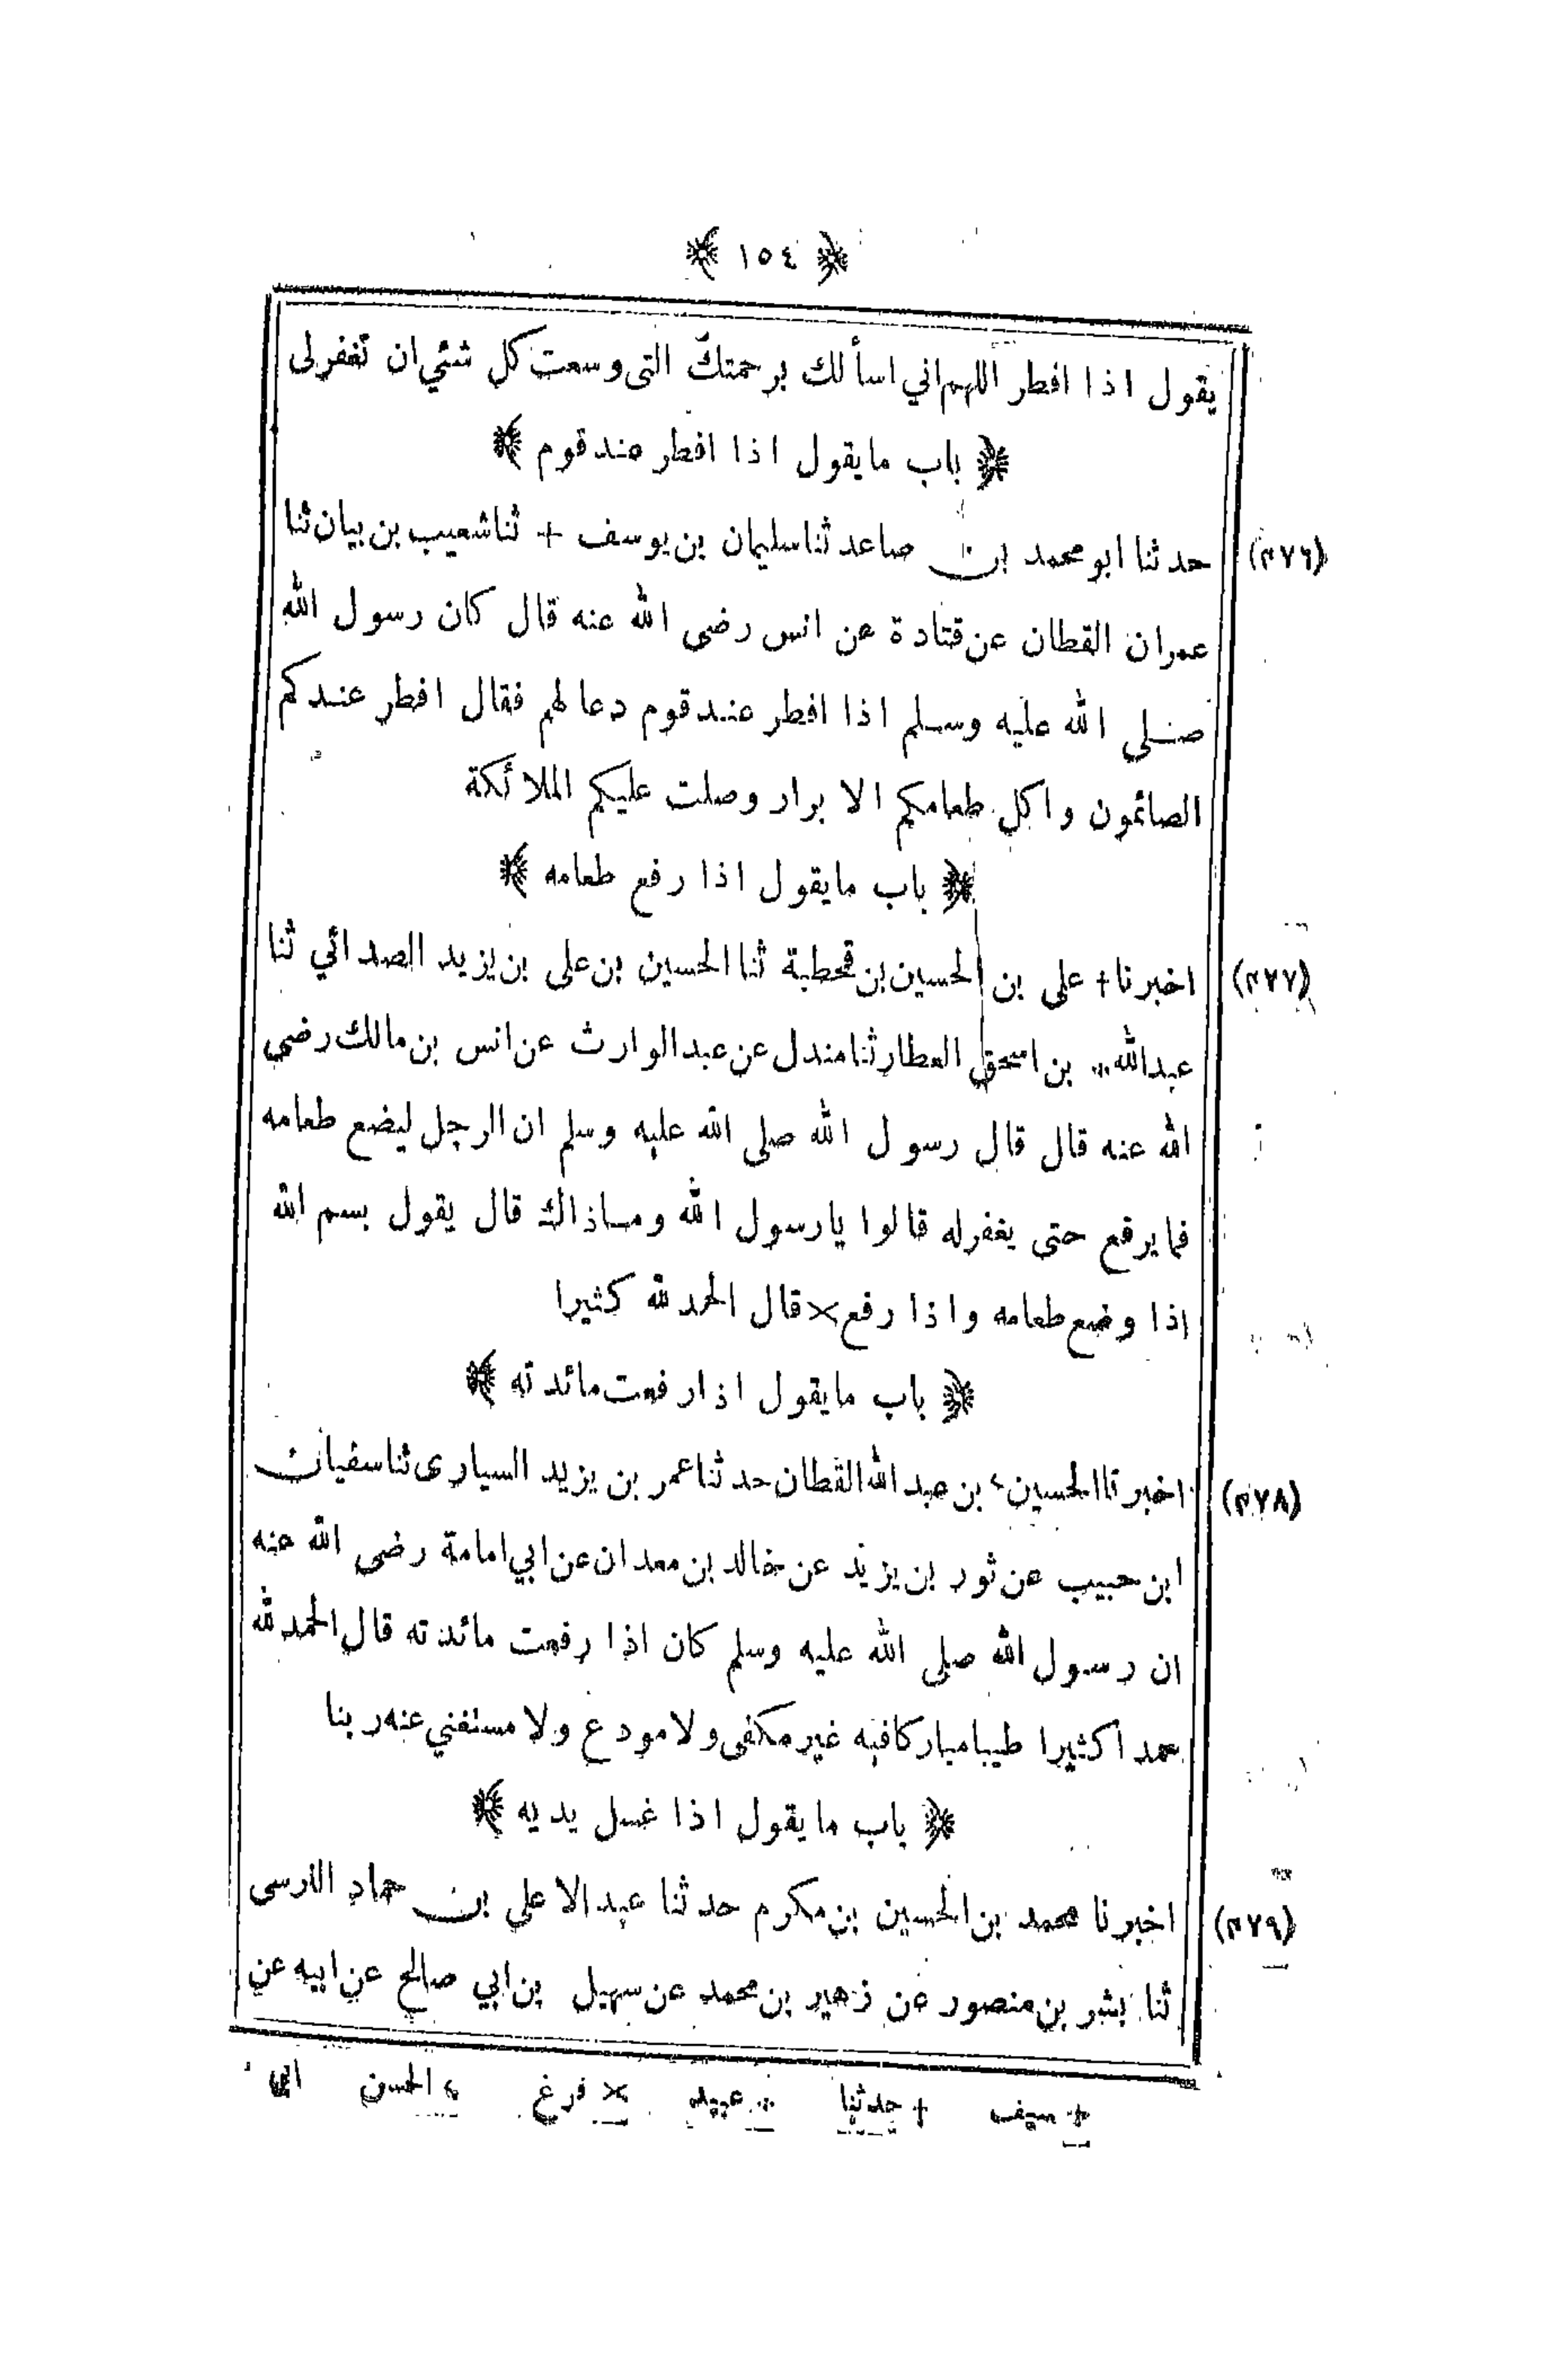 ﴿ ١٥٤ ﴾
يقول اذا افطر اللهم اني اسألك برحمتك التى وسعت كل شئي ان تغفرلى
﴿ باب مايقول اذا افطر عند قوم ﴾
(٤٧٦) حدثنا ابو محمد بن صاعد ثنا سليمان بن يوسف + ثنا شعيب بن بيان ثنا
عمران القطان عن قتادة عن انس رضى الله عنه قال كان رسول الله
صلى الله عليه وسلم اذا افطر عند قوم دعا لهم فقال افطر عندكم
الصائمون واكل طعامكم الابرار وصلت عليكم الملائكة
﴿ باب مايقول اذا رفع طعامه ﴾
(٤٧٧) اخبرنا + على بن الحسين بن قحطبة ثنا الحسين بن على بن يزيد الصدائي ثنا
عبدالله ∴ بن اسحق العطار ثنا مندل عن عبدالوارث عن انس بن مالك رضي
الله عنه قال قال رسول الله صلى الله عليه وسلم ان الرجل ليضع طعامه
فما يرفع حتى يغفرله قالوا يارسول الله وماذاك قال يقول بسم الله
اذا وضع طعامه واذا رفع × قال الحمد لله كثيرا
﴿ باب مايقول اذا رفعت مائدته ﴾
(٤٧٨) اخبرنا الحسين ؛ بن عبدالله القطان حدثنا عمر بن يزيد السيارى ثنا سفيان
ابن حبيب عن ثور بن يزيد عن خالد بن معدان عن ابي امامة رضى الله عنه
ان رسول الله صلى الله عليه وسلم كان اذا رفعت مائدته قال الحمد لله
حمدا كثيرا طيبا مباركا فيه غير مكفى ولا مودع ولا مستغني عنه ربنا
﴿ باب مايقول اذا غسل يديه ﴾
(٤٧٩) اخبرنا محمد بن الحسين بن مكرم حدثنا عبدالاعلى بن حماد النرسى
ثنا بشر بن منصور عن زهير بن محمد عن سهيل بن ابي صالح عن ابيه عن
+ سيف + حدثنا ∴ عبيد × فرغ ؛ الحسن ابي